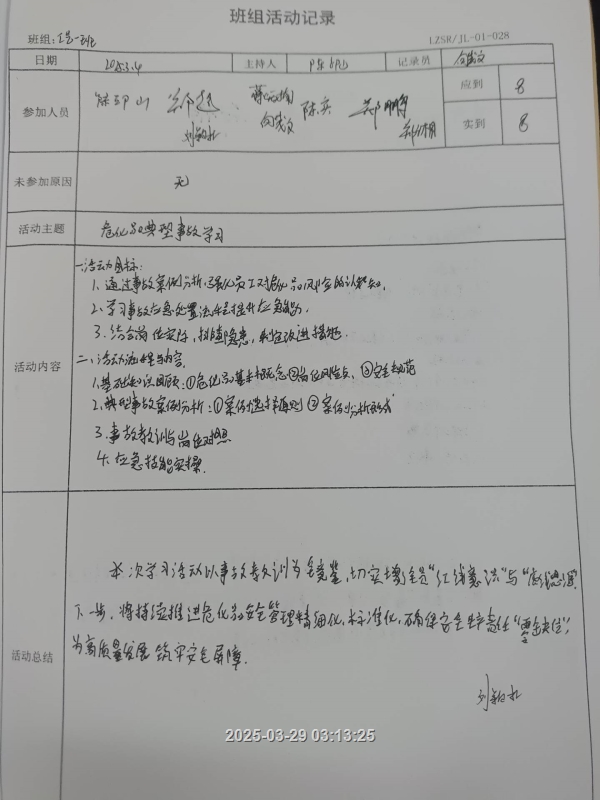 班组活动记录
班组: 工艺一班
LZSR/JL-01-028
日期 2025.3.4 主持人 记录员
参加人员 陈 应到 8
刘 实到 8
未参加原因 无
活动主题 危化品典型事故学习
活动内容
一、活动目标:
1. 通过事故案例分析,强化员工对危化品风险的认知。
2. 学习事故应急处置流程提升应急能力。
3. 结合岗位实际,排查隐患,制定改进措施。
二、活动流程与内容。
1. 基础知识回顾:①危化品基本概念②岗位风险点、③安全规范
2. 典型事故案例分析:①案例选择原则 ②案例分析形式
3. 事故教训与岗位对照
4. 应急技能实操.
活动总结
本次学习活动以事故教训为镜鉴,切实增强全员"红线意识"与"底线思维"
下一步,将持续推进危化品安全管理精细化,标准化,确保安全生产责任"零缺位",
为高质量发展筑牢安全屏障.
2025-03-29 03:13:25